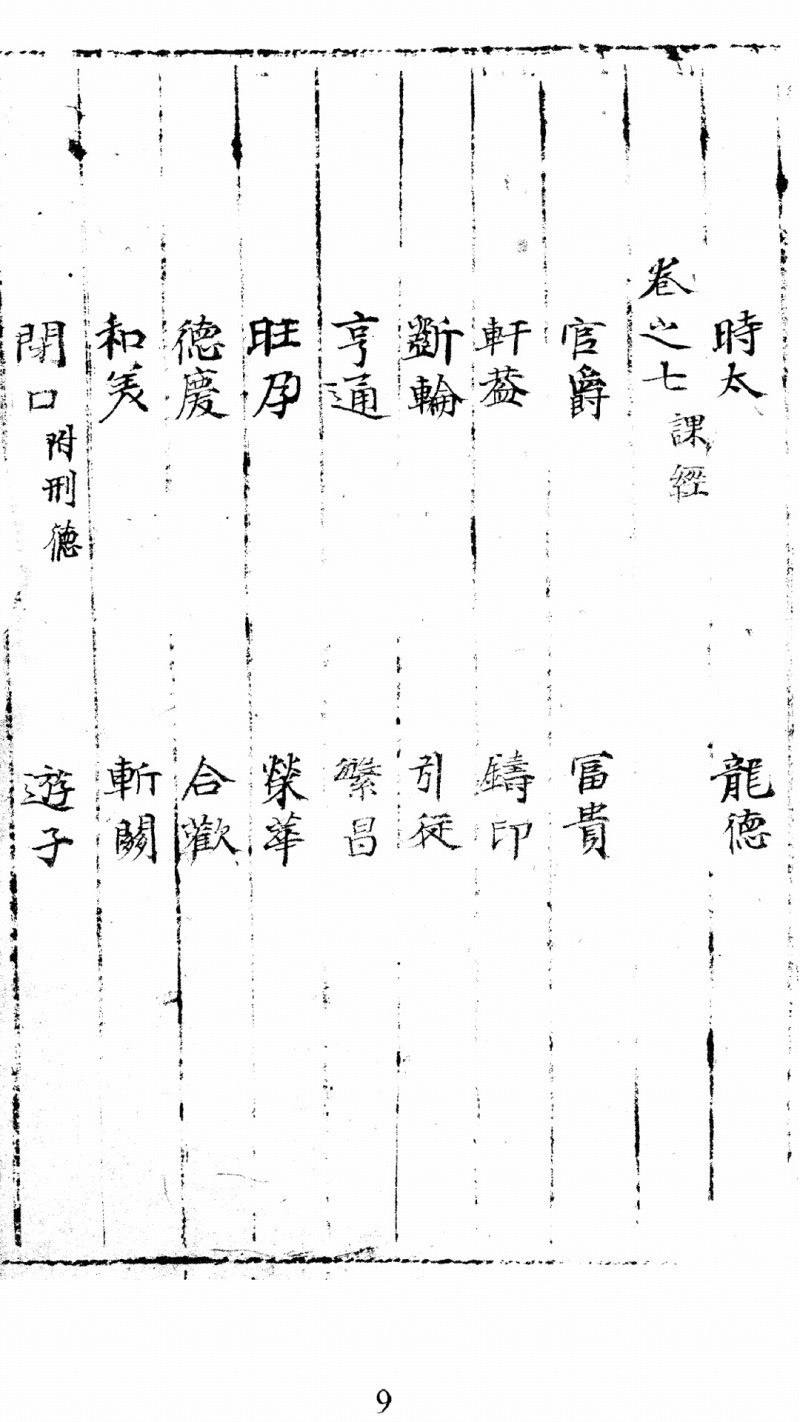 時太 龍德
卷之七 課經
官爵 富貴
軒蓋 鑄印
斵輪 引從
亨通 繁昌
旺孕 榮華
德慶 合歡
和美 斬關
閉口 附刑德 遊子
9